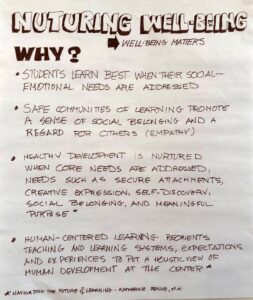 NUTURING WELL-BEING
→ WELL-BEING MATTERS
WHY?
• STUDENTS LEARN BEST WHEN THEIR SOCIAL-
EMOTIONAL NEEDS ARE ADDRESSED
• SAFE COMMUNITIES OF LEARNING PROMOTE
A SENSE OF SOCIAL BELONGING AND A
REGARD FOR OTHERS (EMPATHY)
• HEALTHY DEVELOPMENT IS NURTURED
WHEN CORE NEEDS ARE ADDRESSED,
NEEDS SUCH AS SECURE ATTACHMENTS,
CREATIVE EXPRESSION, SELF-DISCOVERY,
SOCIAL BELONGING, AND MEANINGFUL
PURPOSE *
• HUMAN-CENTERED LEARNING REORIENTS
TEACHING AND LEARNING SYSTEMS, EXPECTATIONS,
AND EXPERIENCES TO PUT A HOLISTIC VIEW OF
HUMAN DEVELOPMENT AT THE CENTER *
* NAVIGATING THE FUTURE OF LEARNING - KATHERINE PRINCE,